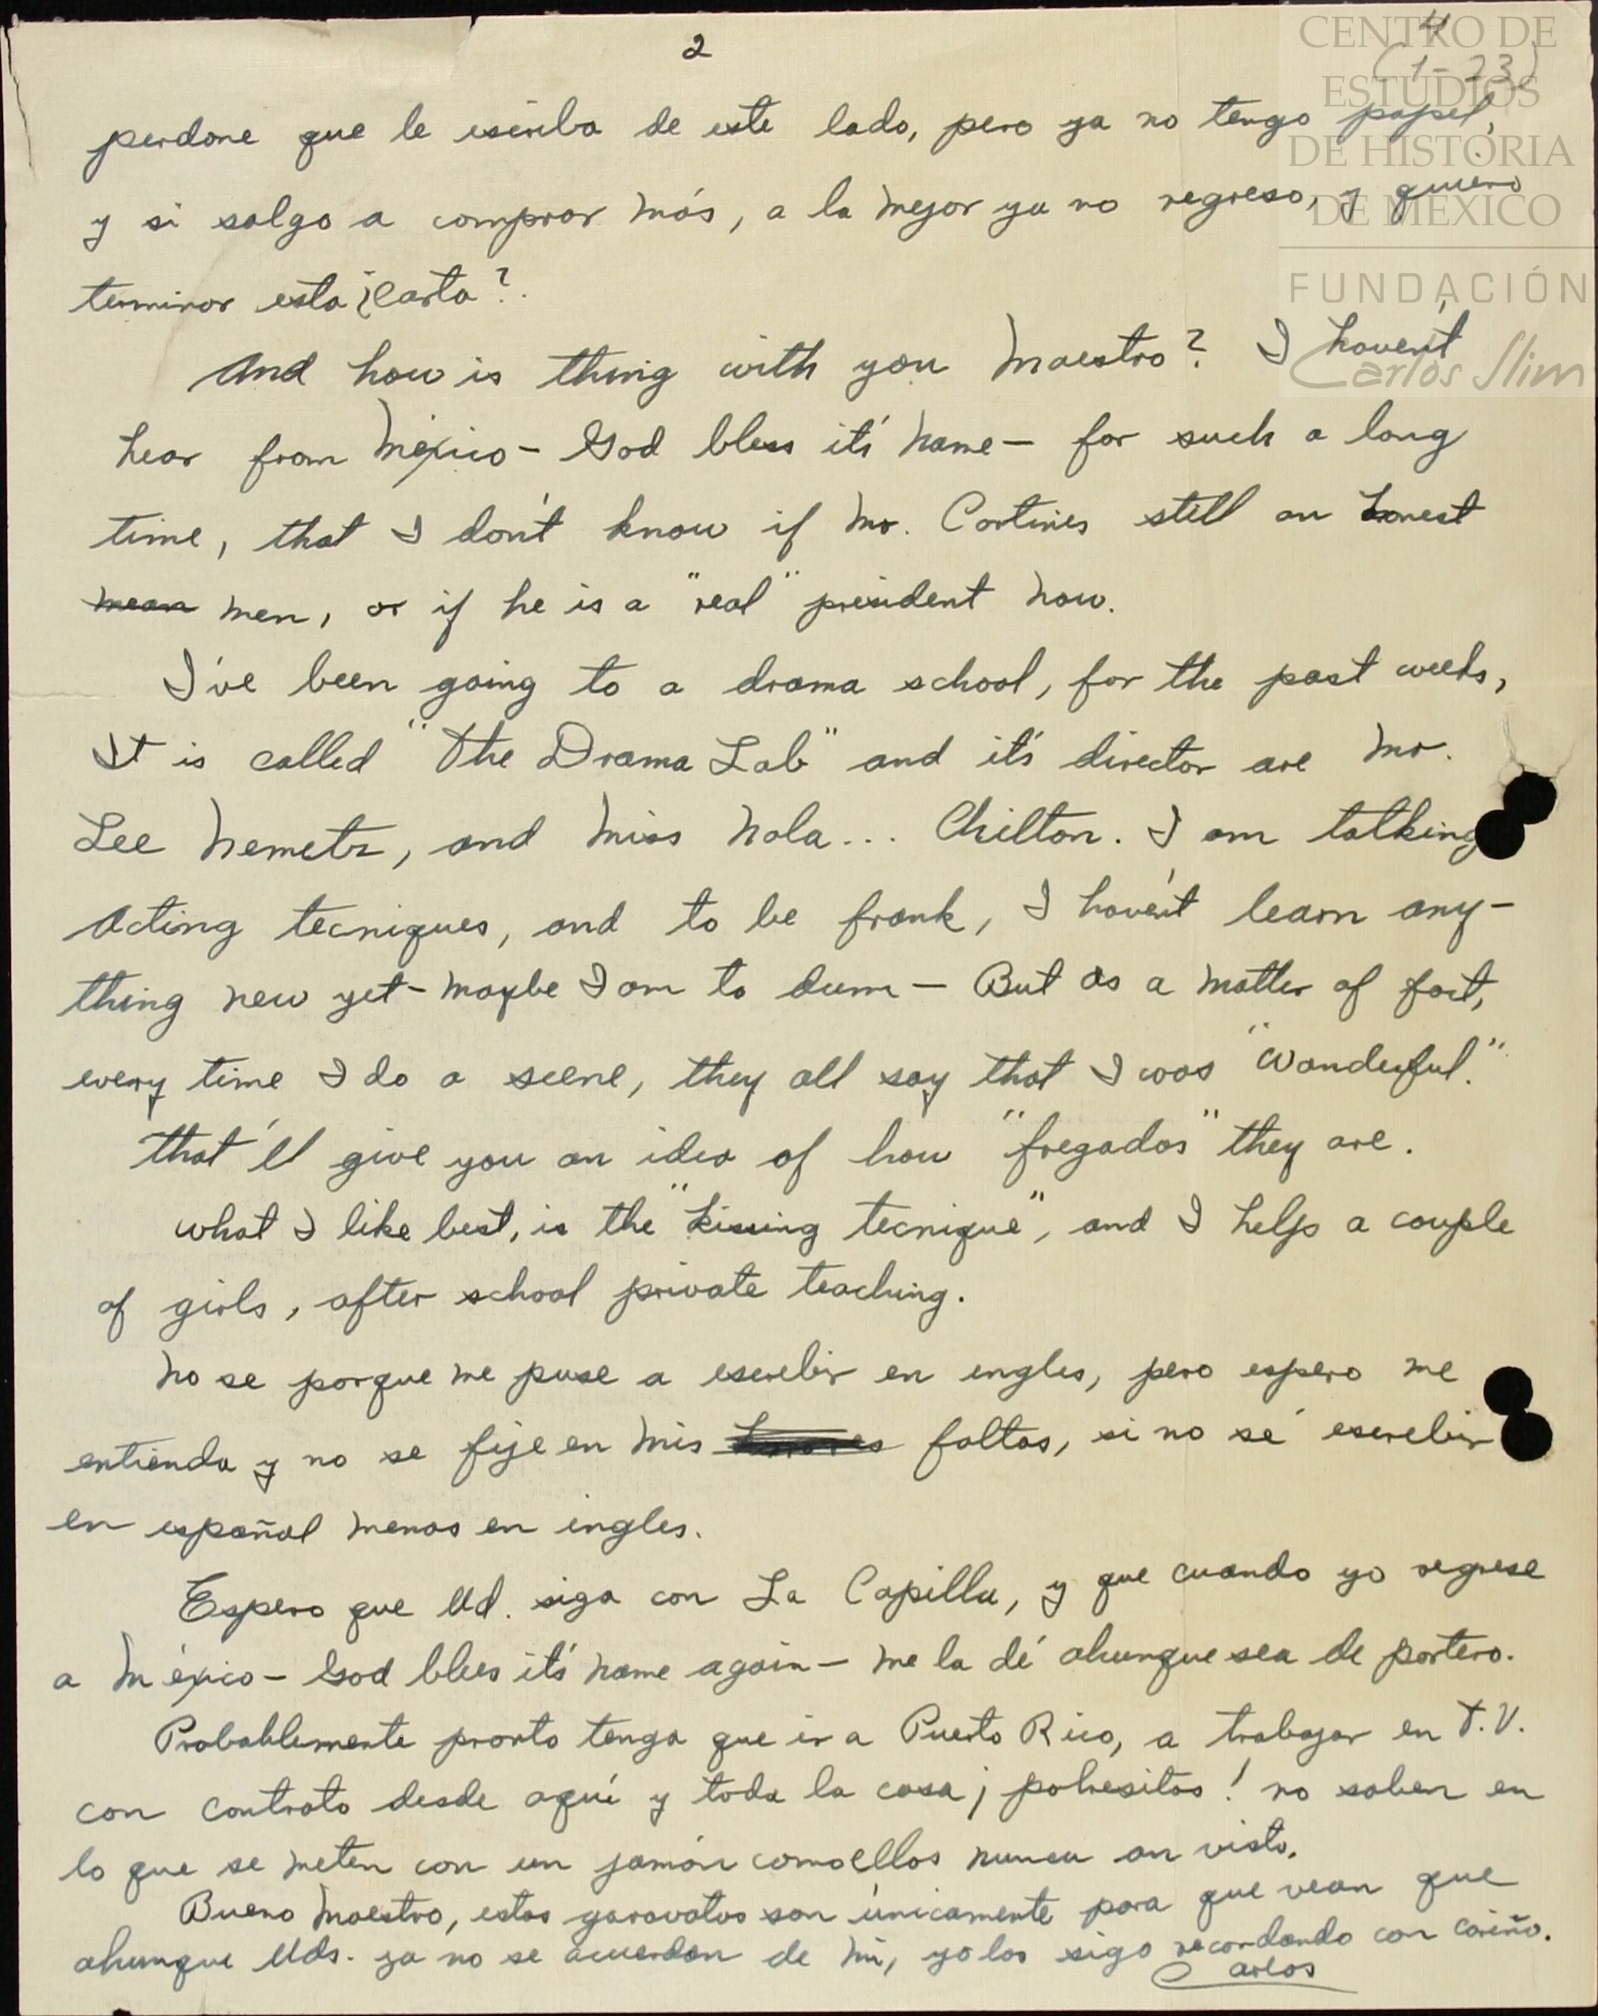 2
4
(1-23)
CENTRO DE
ESTUDIOS
DE HISTORIA
DE MÉXICO
FUNDACIÓN
Carlos Slim
perdone que le escriba de este lado, pero ya no tengo papel,
y si salgo a comprar más, a la mejor ya no regreso, y quiero
terminar esta ¿carta?.
And how is thing with you Maestro? I haven't
hear from México - God bless it's name - for such a long
time, that I don't know if Mr. Cortines still an honest
mean men, or if he is a "real" president now.
I've been going to a drama school, for the past weeks,
It is called "The Drama Lab" and it's director are Mr.
Lee Nemetz, and Miss Nola... Chilton. I am talking
Acting tecniques, and to be frank, I haven't learn any-
thing new yet - maybe I am to dum - But as a matter of fact,
every time I do a scene, they all say that I was "Wonderful".
that'll give you an idea of how "fregados" they are.
what I like best, is the "kissing tecnique", and I help a couple
of girls, after school private teaching.
No se porque me puse a escrebir en ingles, pero espero me
entienda y no se fije en mis faltas, si no sé escrebir
en español menos en ingles.
Espero que Ud. siga con La Capilla, y que cuando yo regrese
a México - God blees it's name again - me la dé ahunque sea de portero.
Probablemente pronto tenga que ir a Puerto Rico, a trabajar en T.V.
con contrato desde aquí y toda la cosa ¡pobresitos! no saben en
lo que se meten con un jamón como ellos nunca an visto.
Bueno Maestro, estos garavatos son únicamente para que vean que
ahunque Uds. ya no se acuerdan de mi, yo los sigo recordando con cariño.
Carlos